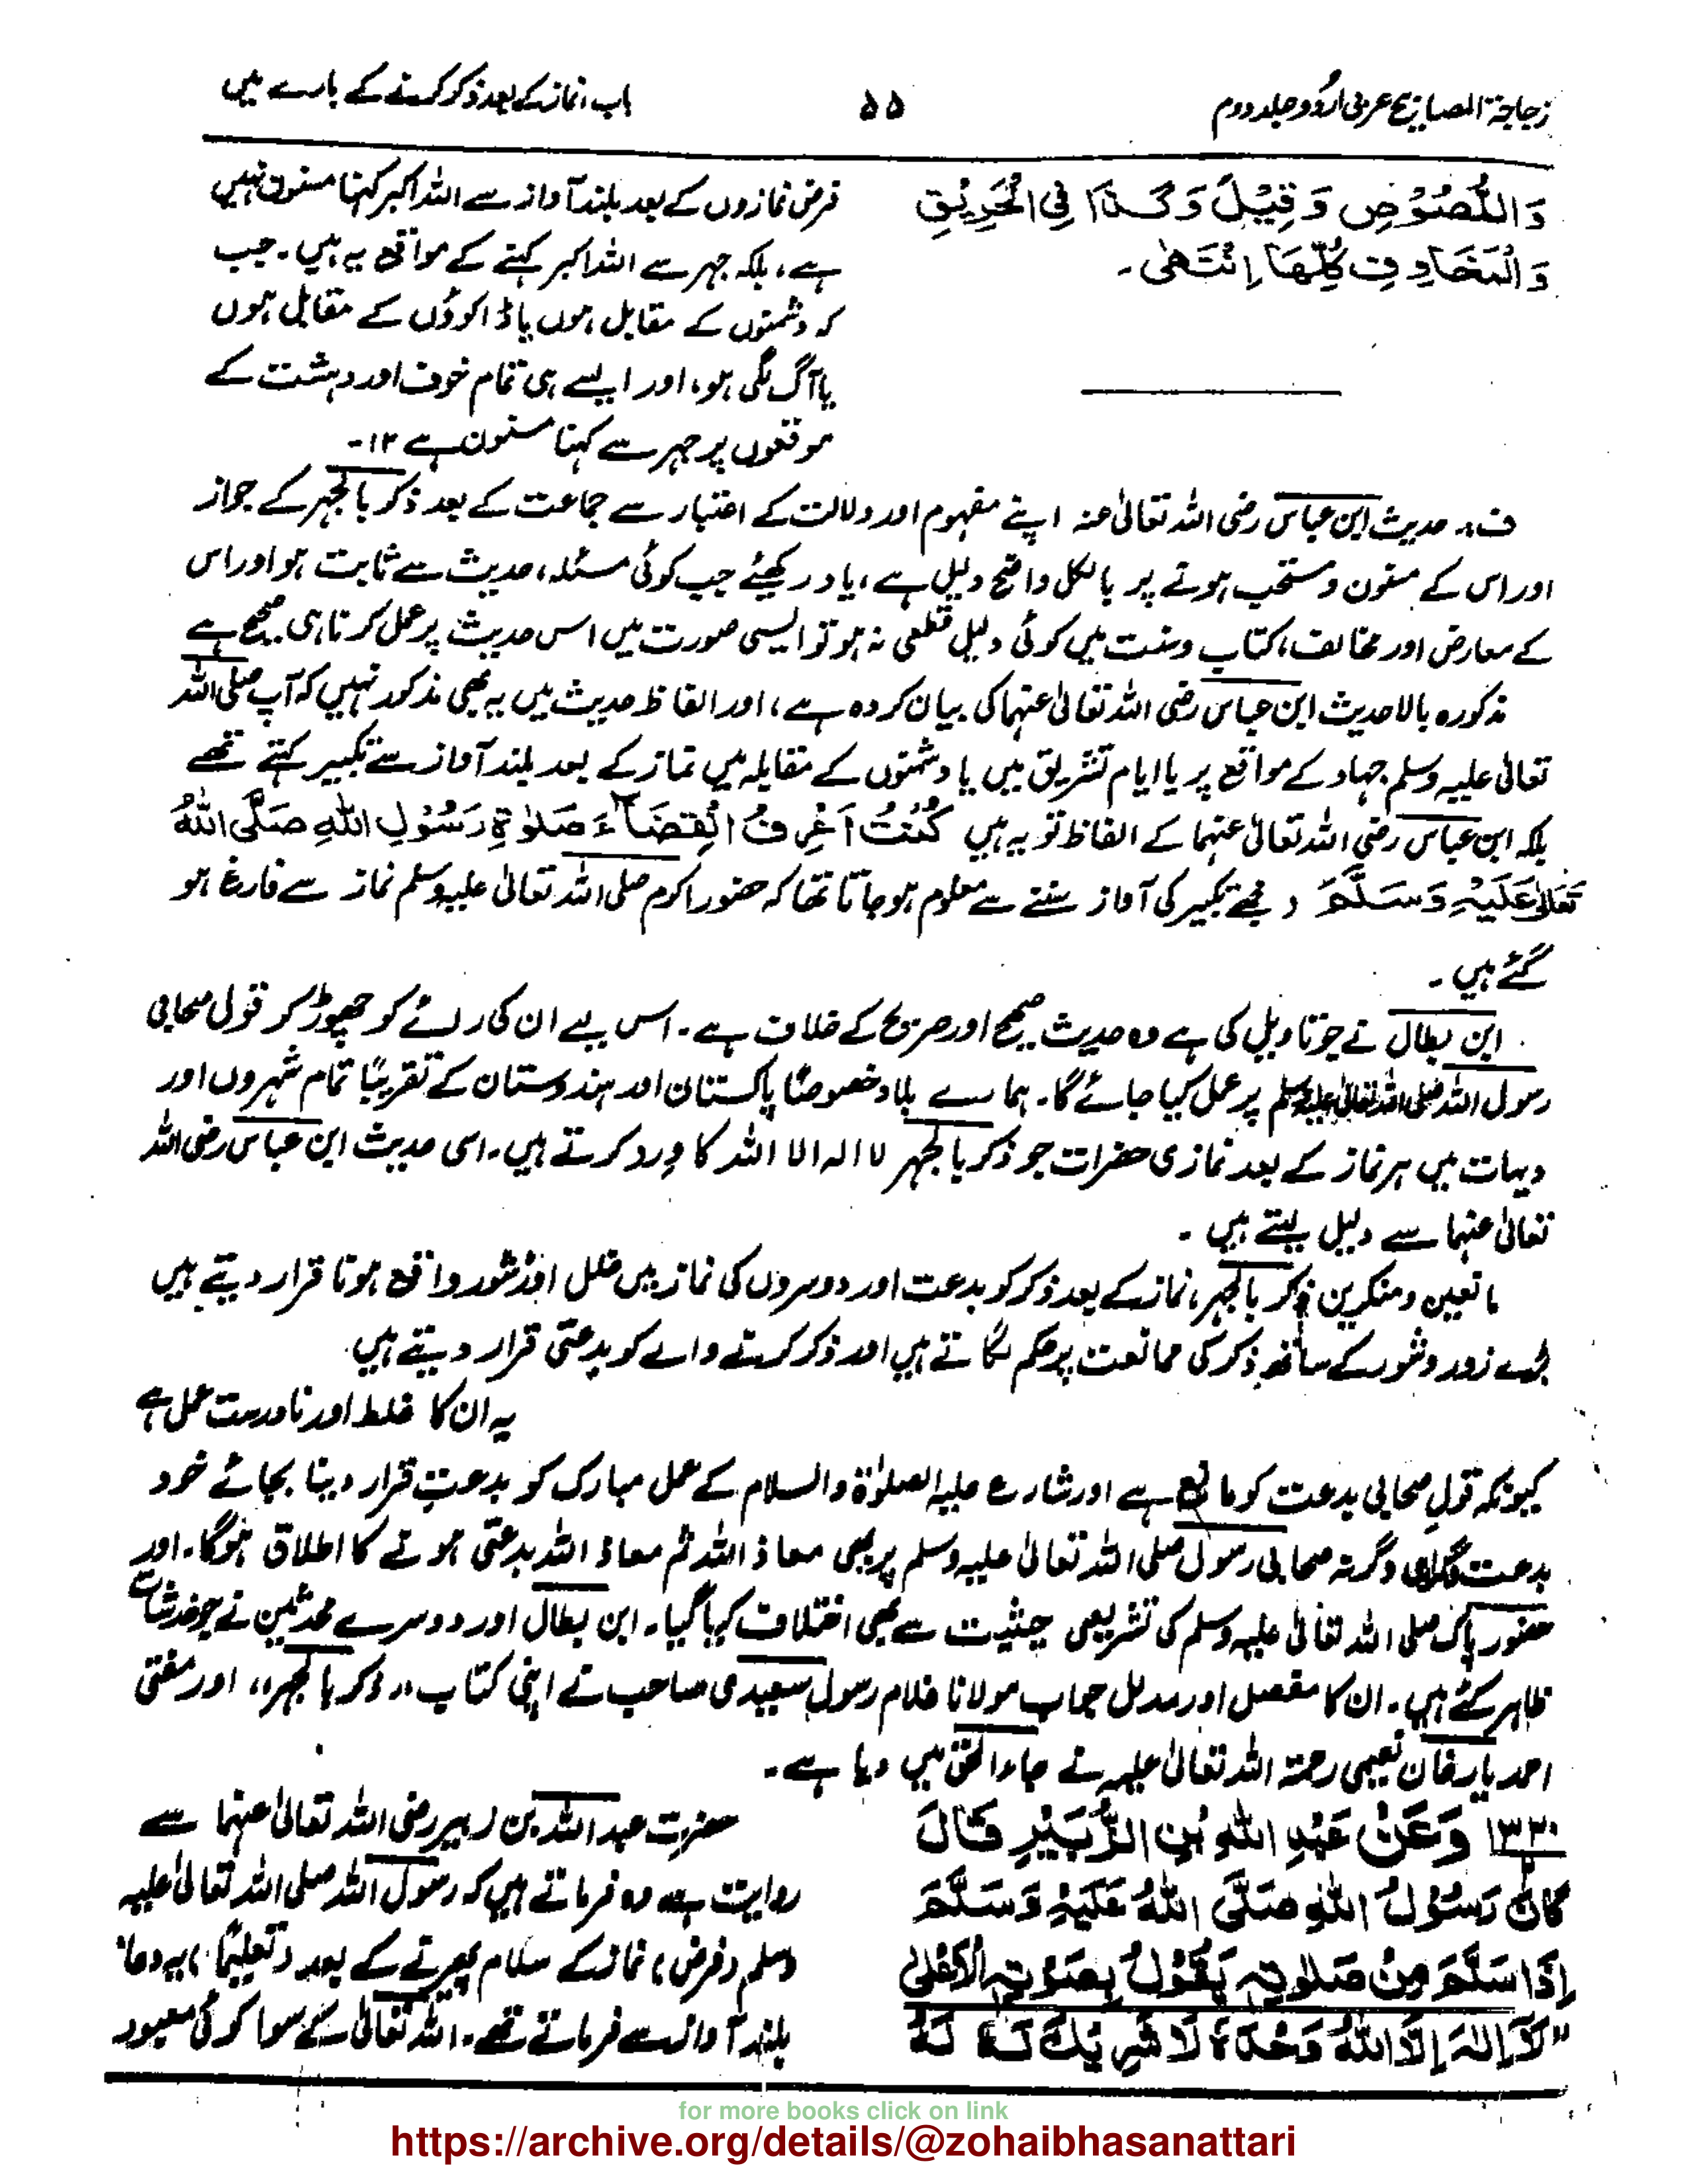 زجاجۃ المصابیح عربی اُردو جلد دوم
۵۵
باب، نماز کے بعد ذکر کرنے کے بارے میں
وَاللُّصُوْصِ وَقِیْلَ وَکَذَا فِی الْحَرِیْقِ
وَالْمَخَاوِفِ کُلِّھَا اِنْتَھٰی۔
فرض نمازوں کے بعد بلند آواز سے اللہ اکبر کہنا مسنون نہیں
ہے، بلکہ جہر سے اللہ اکبر کہنے کے مواقع یہ ہیں۔ جب
کہ دشمنوں کے مقابل ہوں یا ڈاکوؤں کے مقابل ہوں
یا آگ لگی ہو، اور ایسے ہی تمام خوف اور دہشت کے
موقعوں پر جہر سے کہنا مسنون ہے ۱۲-
ف:۔ حدیث ابن عباس رضی اللہ تعالیٰ عنہ اپنے مفہوم اور دلالت کے اعتبار سے جماعت کے بعد ذکر بالجہر کے جواز
اور اس کے مسنون و مستحب ہونے پر بالکل واضح دلیل ہے، یاد رکھیئے جب کوئی مسئلہ، حدیث سے ثابت ہو اور اس
کے معارض اور مخالف، کتاب و سنت میں کوئی دلیل قطعی نہ ہو تو ایسی صورت میں اس حدیث پر عمل کرنا ہی صحیح ہے
مذکورہ بالا حدیث ابن عباس رضی اللہ تعالیٰ عنہما کی بیان کردہ ہے، اور الفاظ حدیث میں یہ بھی مذکور نہیں کہ آپ صلی اللہ
تعالیٰ علیہ وسلم جہاد کے مواقع پر یا ایام تشریق میں یا دشمنوں کے مقابلہ میں نماز کے بعد بلند آواز سے تکبیر کہتے تھے
بلکہ ابن عباس رضی اللہ تعالیٰ عنہما کے الفاظ تو یہ ہیں کُنْتُ اَعْرِفُ انْقِضَاءَ صَلٰوۃِ رَسُوْلِ اللّٰہِ صَلَّی اللّٰہُ
تَعَالٰی عَلَیْہِ وَسَلَّمَ ، مجھے تکبیر کی آواز سننے سے معلوم ہو جاتا تھا کہ حضور اکرم صلی اللہ تعالیٰ علیہ وسلم نماز سے فارغ ہو
گئے ہیں۔
ابن بطال نے جو تاویل کی ہے وہ حدیث صحیح اور صریح کے خلاف ہے۔ اس لیے ان کی رائے کو چھوڑ کر قول صحابی
رسول اللہ صلی اللہ تعالیٰ علیہ وسلم پر عمل کیا جائے گا۔ ہمارے بلاد خصوصًا پاکستان اور ہندوستان کے تقریبًا تمام شہروں اور
دیہات میں ہر نماز کے بعد نمازی حضرات جو ذکر بالجہر لا الہ الا اللہ کا وِرد کرتے ہیں۔ اسی حدیث ابن عباس رضی اللہ
تعالیٰ عنہما سے دلیل لیتے ہیں۔
مانعین و منکرین ذکر بالجہر، نماز کے بعد ذکر کو بدعت اور دوسروں کی نماز میں خلل اور شور واقع ہونا قرار دیتے ہیں
بڑے زور و شور کے ساتھ ذکر کی ممانعت پر حکم لگاتے ہیں اور ذکر کرنے والے کو بدعتی قرار دیتے ہیں۔
یہ ان کا غلط اور نادرست عمل ہے
کیونکہ قولِ صحابی بدعت کو مانع ہے اور شارع علیہ الصلوٰۃ والسلام کے عمل مبارک کو بدعت قرار دینا بجائے خود
بدعت وگرنہ صحابی رسول صلی اللہ تعالیٰ علیہ وسلم پر بھی معاذ اللہ ثم معاذ اللہ بدعتی ہونے کا اطلاق ہوگا۔ اور
حضور پاک صلی اللہ تعالیٰ علیہ وسلم کی تشریعی حیثیت سے بھی اختلاف کیا گیا۔ ابن بطال اور دوسرے محدثین نے جو خدشات
ظاہر کئے ہیں۔ ان کا مفصل اور مدلل جواب مولانا غلام رسول سعیدی صاحب نے اپنی کتاب ،،ذکر بالجہر،، اور مفتی
احمد یار خان نعیمی رحمۃ اللہ تعالیٰ علیہ نے جاء الحق میں دیا ہے۔
۱۳۳۰ وَعَنْ عَبْدِ اللّٰہِ بْنِ الزُّبَیْرِ قَالَ
کَانَ رَسُوْلُ اللّٰہِ صَلَّی اللّٰہُ عَلَیْہِ وَسَلَّمَ
اِذَا سَلَّمَ مِنْ صَلٰوتِہٖ یَقُوْلُ بِصَوْتِہِ الْاَعْلٰی
"لَا اِلٰہَ اِلَّا اللّٰہُ وَحْدَہٗ لَا شَرِیْکَ لَہٗ لَہُ
حضرت عبد اللہ بن زبیر رضی اللہ تعالیٰ عنہما سے
روایت ہے وہ فرماتے ہیں کہ رسول اللہ صلی اللہ تعالیٰ علیہ
وسلم (فرض) نماز کے سلام پھیرنے کے بعد (تعلیمًا) یہ دعا
بلند آواز سے فرماتے تھے۔ اللہ تعالیٰ کے سوا کوئی معبود
for more books click on link
https://archive.org/details/@zohaibhasanattari